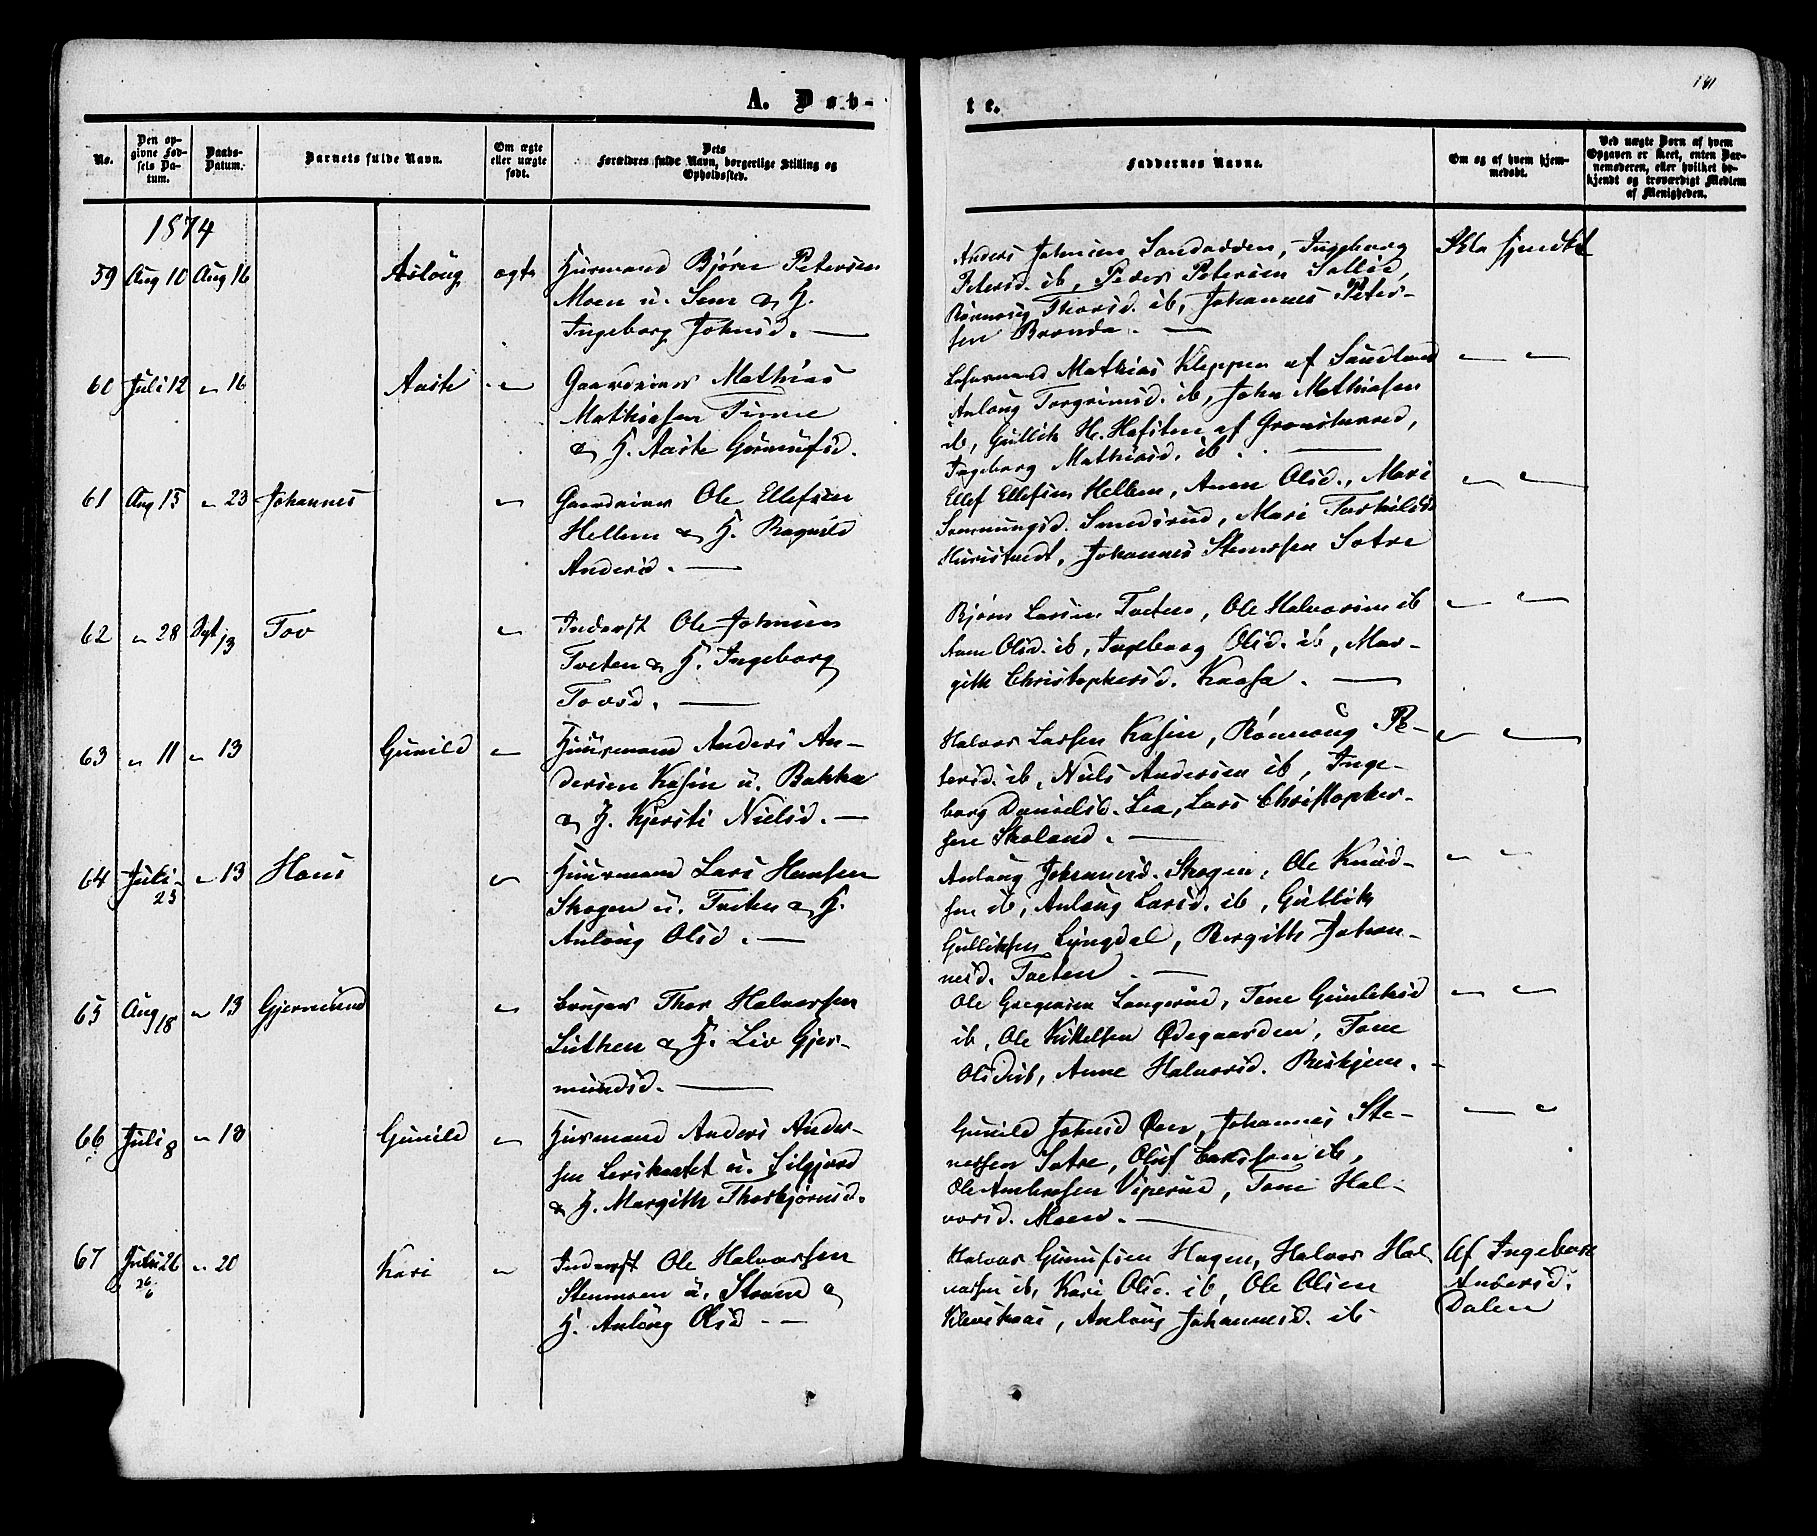 141
A. Døb-
te.
No.
Den op-
givne Fød-
sels Da-
tum.
Daabs-
Datum.
Barnets fulde Navn.
Om ægte
eller uægte
født.
Dets
Forældres fulde Navn, borgerlige Stilling og
Opholdssted.
Faddernes Navne.
Om og af hvem hjem-
medøbt.
Ved uægte Børn af hvem
Opgaven er skeet, enten Bar-
nemoderen, eller hvilket be-
kjendt og troværdigt Medlem
af Menigheden.
1874
59 Aug 10 Aug 16 Asloug ægte Huusmand Bjørn Petersen
Moen u. Sem & H.
Ingeborg Johnsd. —
Anders Johnsen Sandadden, Ingeborg
Petersd. ib, Peder Petersen Sollid,
Rønnoug Thorsd. ib, Johannes Peter-
sen Brønda. —
Ikke hjemdøbt
60 Juli 12 " 16 Aaste " Gaardeier Mathias
Mathiasen Finne
& H. Aaste Gunnufsd.
Mathias Kleppen af Sandland
Anlaug Torgrimsd. ib, John Mathiasen
ib, Gullik H. Hafsten af Gransherred,
Ingeborg Mathiasd. ib. —
" "
61 Aug 15 " 23 Johannes " Gaardeier Ole Ellefsen
Hellem & H. Ragnild
Andersd. —
Ellef Ellefsen Hellem, Anne Olsd., Mari
Sandsrud, Mari Torkildsd.
Johannes Stenersen Sotre
" "
62 " 28 Sept 13 Tov " Inderst Ole Johnsen
Tveten & H. Ingeborg
Tovsd. —
Bjørn Larsen Tveten, Ole Halvorsen ib
Anne Olsd. ib, Ingeborg Olsd. ib, Mar-
gith Christophersd. Kaasa. —
" "
63 " 11 " 13 Gunild " Huusmand Anders An-
dersen Kasin u. Bakka
& H. Kjersti Nielsd. —
Halvor Larsen Kasin, Rønnoug Pe-
tersd. ib, Niels Andersen ib, Inge-
borg Danielsd. Lia, Lars Christopher-
sen Skoland. —
" "
64 Juli 25 " 13 Hans " Huusmand Lars Hansen
Skogen u. Tveten & H.
Anlaug Olsd. —
Anlaug Johannesd. Skogen, Ole Knud-
sen ib, Anlaug Larsd. ib, Gullik
Gulliksen Lyngdal, Birgitte Johan-
nesd. Tveten. —
" "
65 Aug 18 " 13 Gjermund " Bruger Thor Halvorsen
Luthen & H. Liv Gjer-
mundsd. —
Ole Gregersen Langerud, Tone Gunleiksd
ib, Ole Kittelsen Ødegaarden, Tone
Olsd. ib, Anne Halvorsd. Biskjem.
" "
66 Juli 8 " 13 Gunild " Huusmand Anders Ander-
sen u. Lilgjord
& H. Margith Thorbjørnsd.
Gunild Johnsd Øen, Johannes Ste-
nersen Sotre, Oluf ib,
Ole Ambrosen Viperud, Tone Hal-
vorsd. Moen. —
" "
67 Juli 26 " 20 Kari " Inderst Ole Halvorsen
Stenmoen u. Strand &
H. Anlaug Olsd. —
Halvor Gunnufsen Hagen, Halvor Hal-
vorsen ib, Kari Olsd. ib, Ole Olsen
Anlaug Johannesd. ib
Af Ingeborg
Andersd.
Dalen